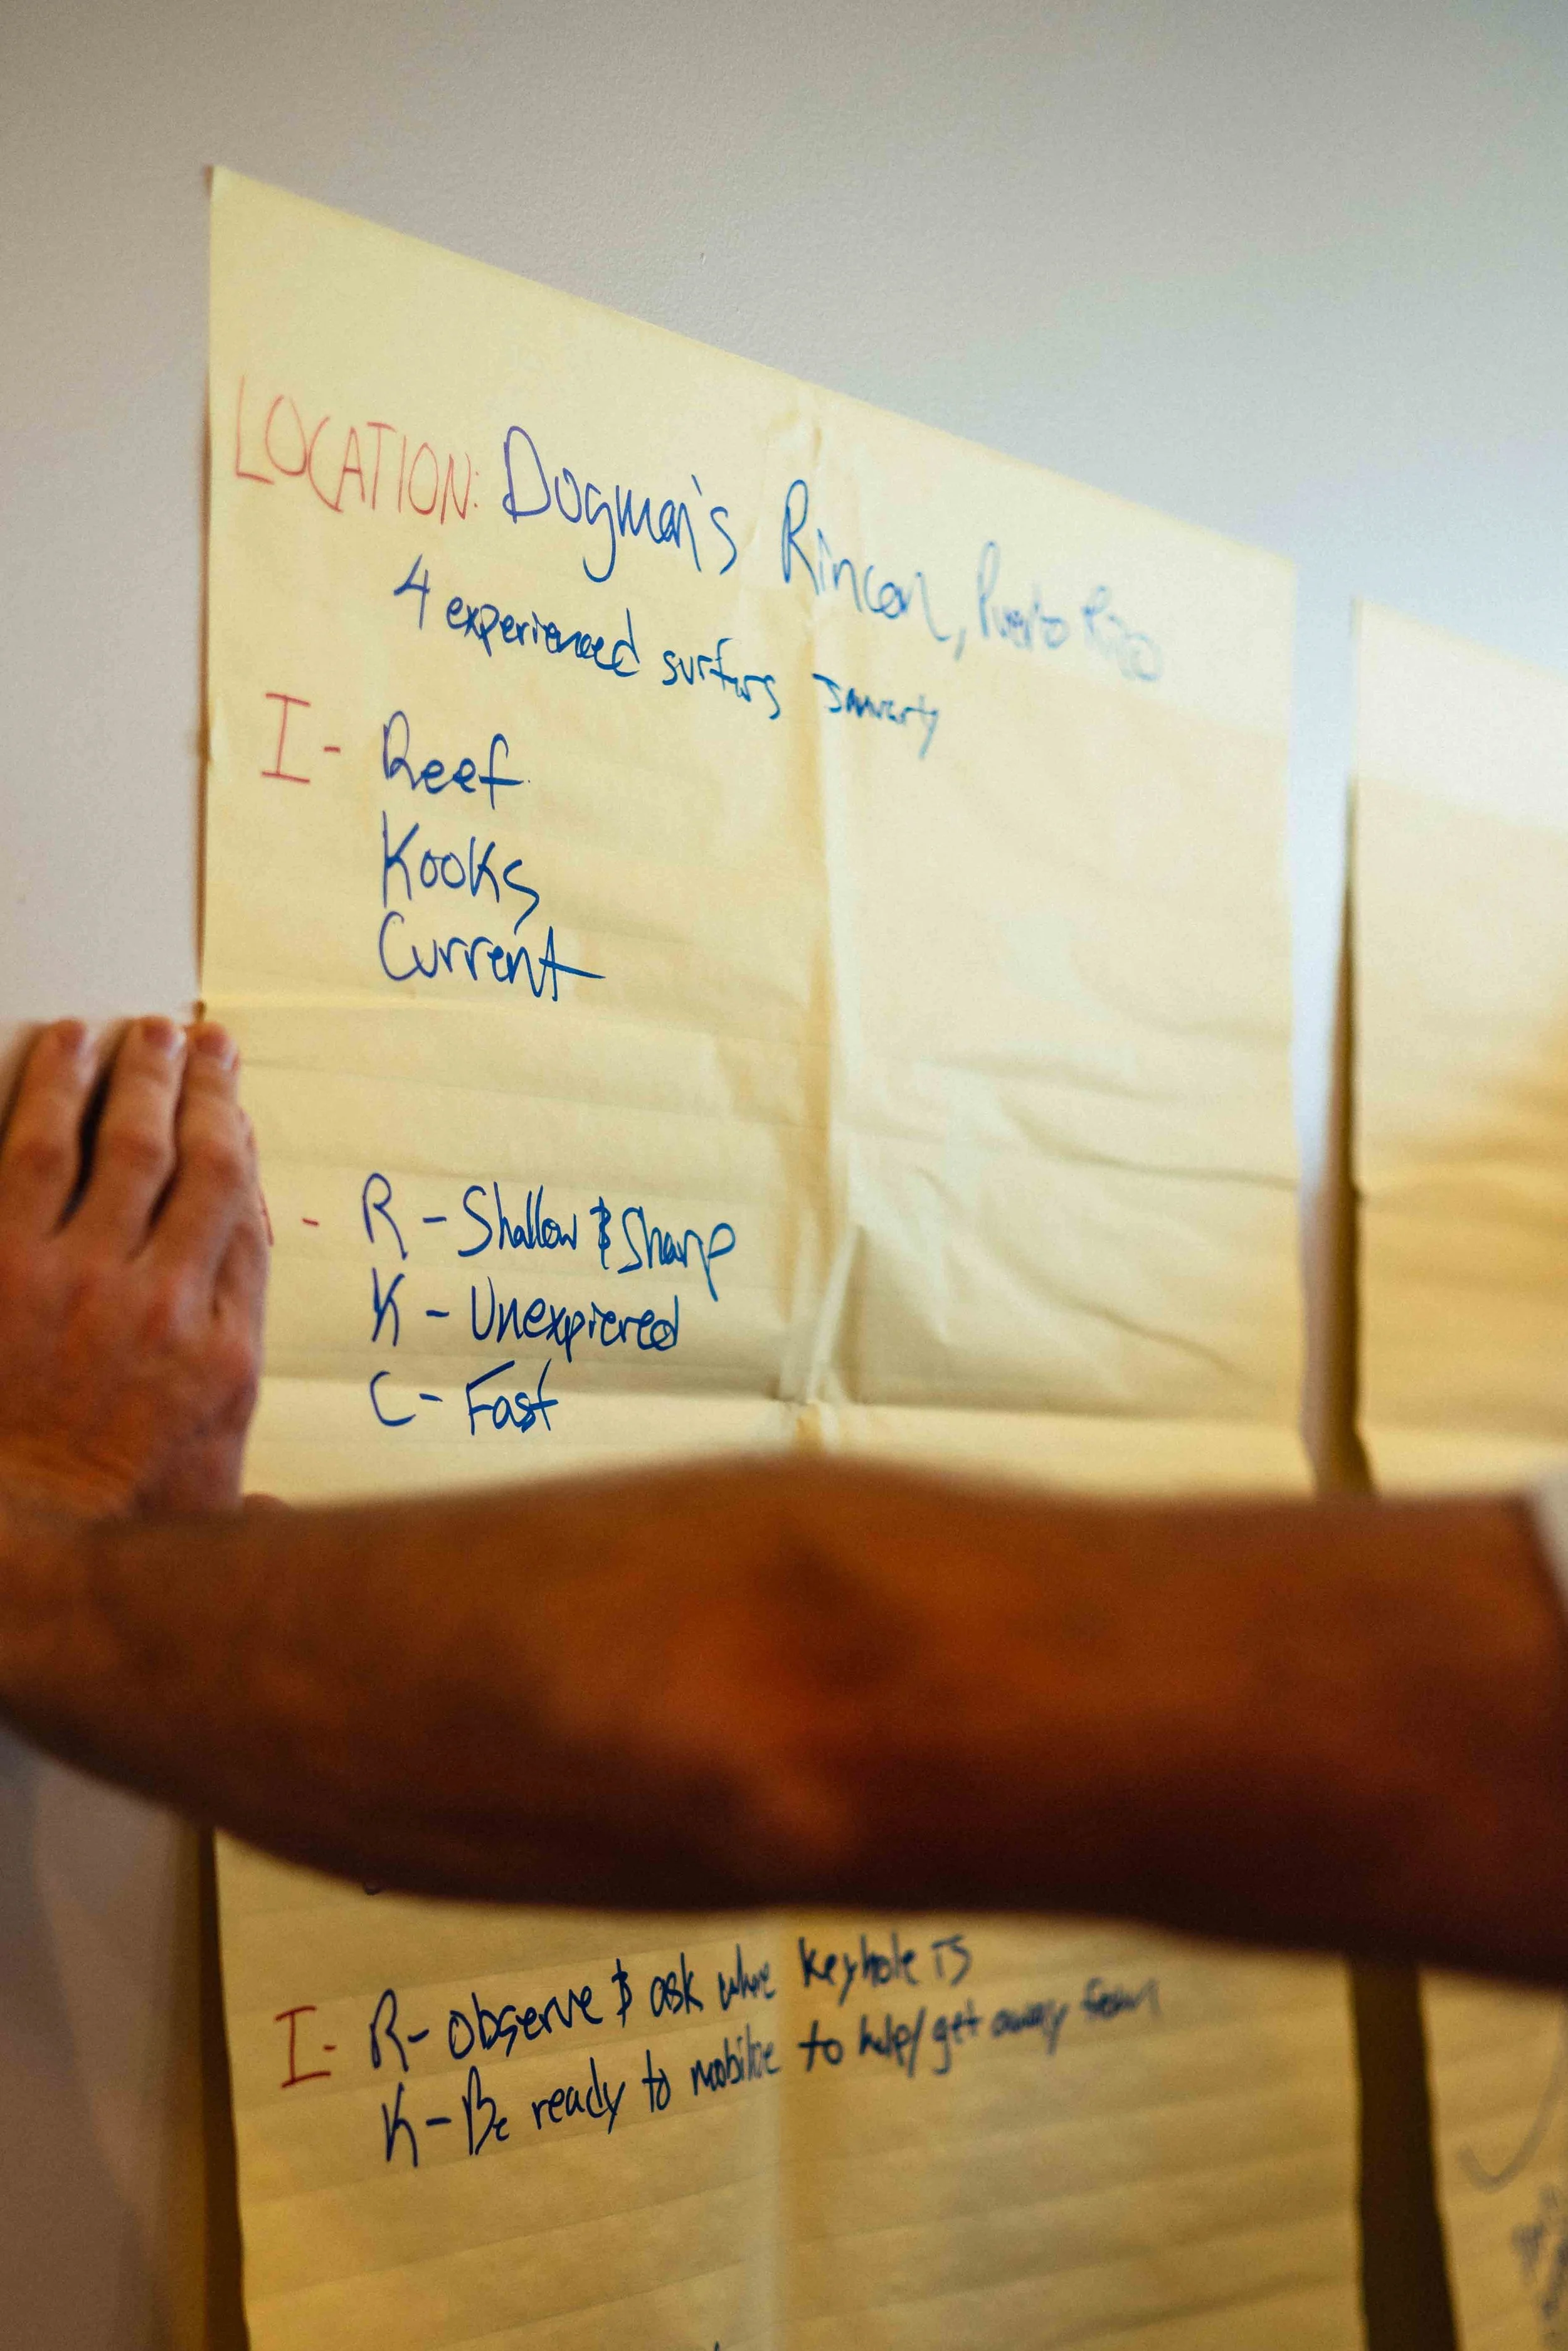 LOCATION: Dogman's Rincon, Puerto Rico
4 experienced surfers January
I - Reef
Kooks
Current
- R - Shallow & Sharp
K - Unexpiered
C - Fast
I - R - Observe & ask where keyhole is
K - Be ready to mobilize to help/get away from